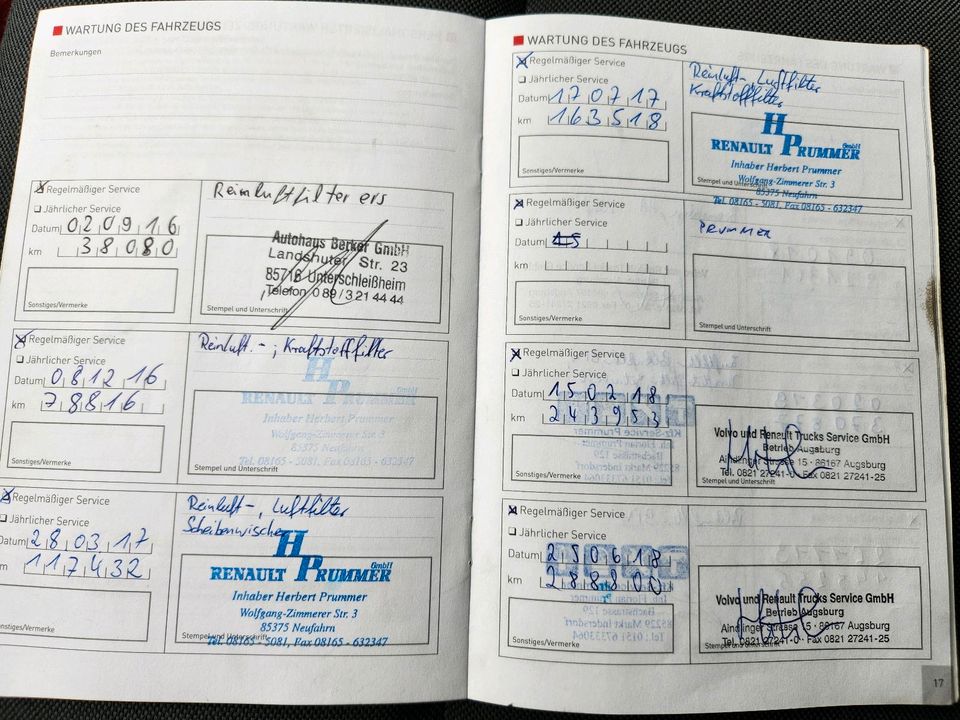 WARTUNG DES FAHRZEUGS
Bemerkungen
Regelmäßiger Service
Jährlicher Service
Datum 02 09 16
km 38080
Sonstiges/Vermerke
Reinluftfilter ers
Autohaus Berker GmbH
Landshuter Str. 23
85716 Unterschleißheim
Telefon 089/321 44 44
Stempel und Unterschrift
Regelmäßiger Service
Jährlicher Service
Datum 08 12 16
km 78816
Sonstiges/Vermerke
Reinluft.-, Kraftstofffilter
H
RENAULT PRUMMER GmbH
Inhaber Herbert Prummer
Wolfgang-Zimmerer Str. 3
85375 Neufahrn
Tel. 08165 - 5081, Fax 08165 - 632347
Stempel und Unterschrift
Regelmäßiger Service
Jährlicher Service
Datum 28 03 17
km 117432
Sonstiges/Vermerke
Reinluft-, Luftfilter
Scheibenwischer
H
RENAULT PRUMMER GmbH
Inhaber Herbert Prummer
Wolfgang-Zimmerer Str. 3
85375 Neufahrn
Stempel und Unterschrift
Tel. 08165 - 5081, Fax 08165 - 632347
WARTUNG DES FAHRZEUGS
Regelmäßiger Service
Jährlicher Service
Datum 17 07 17
km 163518
Sonstiges/Vermerke
Reinluft-, Luftfilter
Kraftstofffilter
H
RENAULT PRUMMER GmbH
Inhaber Herbert Prummer
Wolfgang-Zimmerer Str. 3
Stempel und Unterschrift
85375 Neufahrn
Tel. 08165 - 5081, Fax 08165 - 632347
Regelmäßiger Service
Jährlicher Service
Datum
km
Sonstiges/Vermerke
PRUMMER
Stempel und Unterschrift
Regelmäßiger Service
Jährlicher Service
Datum 15 02 18
km 243953
Sonstiges/Vermerke
Volvo und Renault Trucks Service GmbH
Betrieb Augsburg
Aindlinger Strasse 15 · 86167 Augsburg
Tel. 0821 27241-0 · Fax 0821 27241-25
Stempel und Unterschrift
Regelmäßiger Service
Jährlicher Service
Datum 25 06 18
km 288800
Sonstiges/Vermerke
Volvo und Renault Trucks Service GmbH
Betrieb Augsburg
Aindlinger Strasse 15 · 86167 Augsburg
Tel. 0821 27241-0 · Fax 0821 27241-25
Stempel und Unterschrift
17